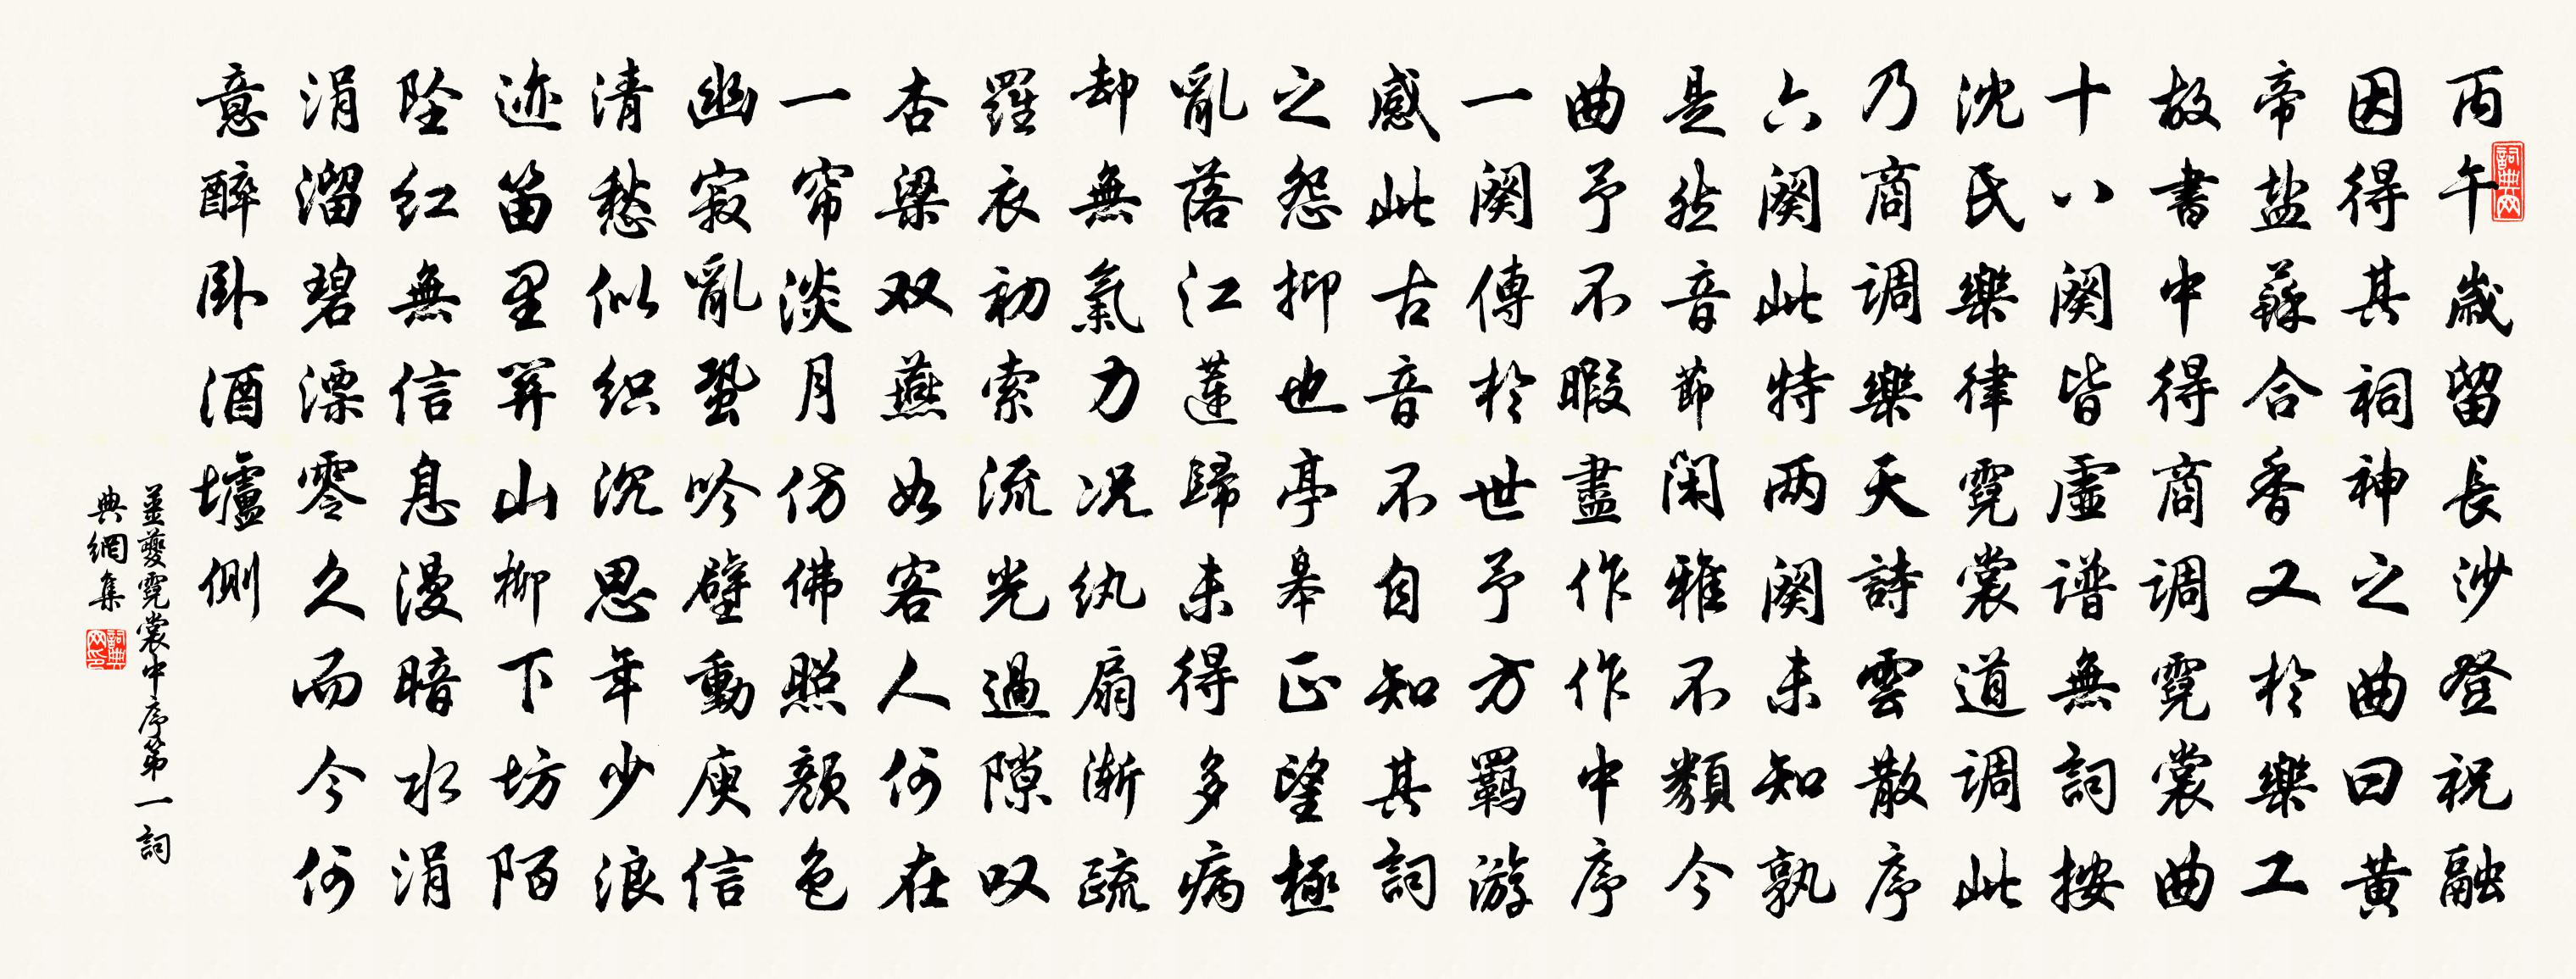 丙午歲留長沙登祝融
因得其祠神之曲曰黄
帝盐蘇合香又於樂工
故書中得商调霓裳曲
十八阕皆虛谱無詞按
沈氏樂律霓裳道调此
乃商调樂天詩雲散序
六阕此特两阕未知孰
是然音節闲雅不類今
曲予不暇盡作作中序
一阕傳於世予方羈游
感此古音不自知其詞
之怨抑也亭皋正望極
亂落江蓮歸未得多病
却無氣力况纨扇渐疏
羅衣初索流光過隙叹
杏梁双燕如客人何在
一帘淡月仿佛照颜色
幽寂亂蛩吟壁動庾信
清愁似织沉思年少浪
迹笛里関山柳下坊陌
坠红無信息漫暗水涓
涓溜碧漂零久而今何
意醉卧酒壚側
姜夔霓裳中序第一詞
典網集
詞典网
詞典网印